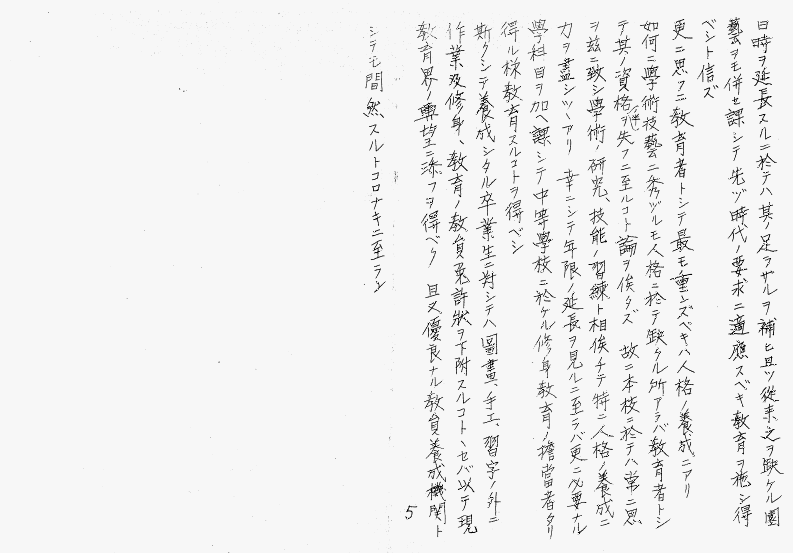 日時ヲ延長スルニ於テハ其ノ足ラザルヲ補ヒ且ツ從来之ヲ缺ケル園
藝ヲモ併セ課シテ先ヅ時代ノ要求ニ適應スベキ教育ヲ施シ得
ベシト信ズ
更ニ思フニ教育者トシテ最モ重ンズベキハ人格ノ養成ニアリ
如何ニ學術技藝ニ秀ヅルモ人格ニ於テ缺クル所アラバ教育者トシ
テ其ノ資格ヲ失フニ至ルコト論ヲ俟タズ 故ニ本校ニ於テハ常ニ思
ヲ玆ニ致シ學術ノ研究、技能ノ習練ト相俟チテ特ニ人格ノ養成ニ
力ヲ盡シツヽアリ 幸ニシテ年限ノ延長ヲ見ルニ至ラバ更ニ必要ナル
學科目ヲ加ヘ課シテ中等學校ニ於ケル修身教育ノ擔當者タリ
得ル樣教育スルコトヲ得ベシ
斯クシテ養成シタル卒業生ニ對シテハ圖畫、手工、習字ノ外ニ
作業及修身、教育ノ教員免許狀ヲ下附スルコトヽセバ以テ現
教育界ノ要望ニ添フヲ得ベク 且又優良ナル教員養成機關ト
シテモ間然スルトコロナキニ至ラン
5